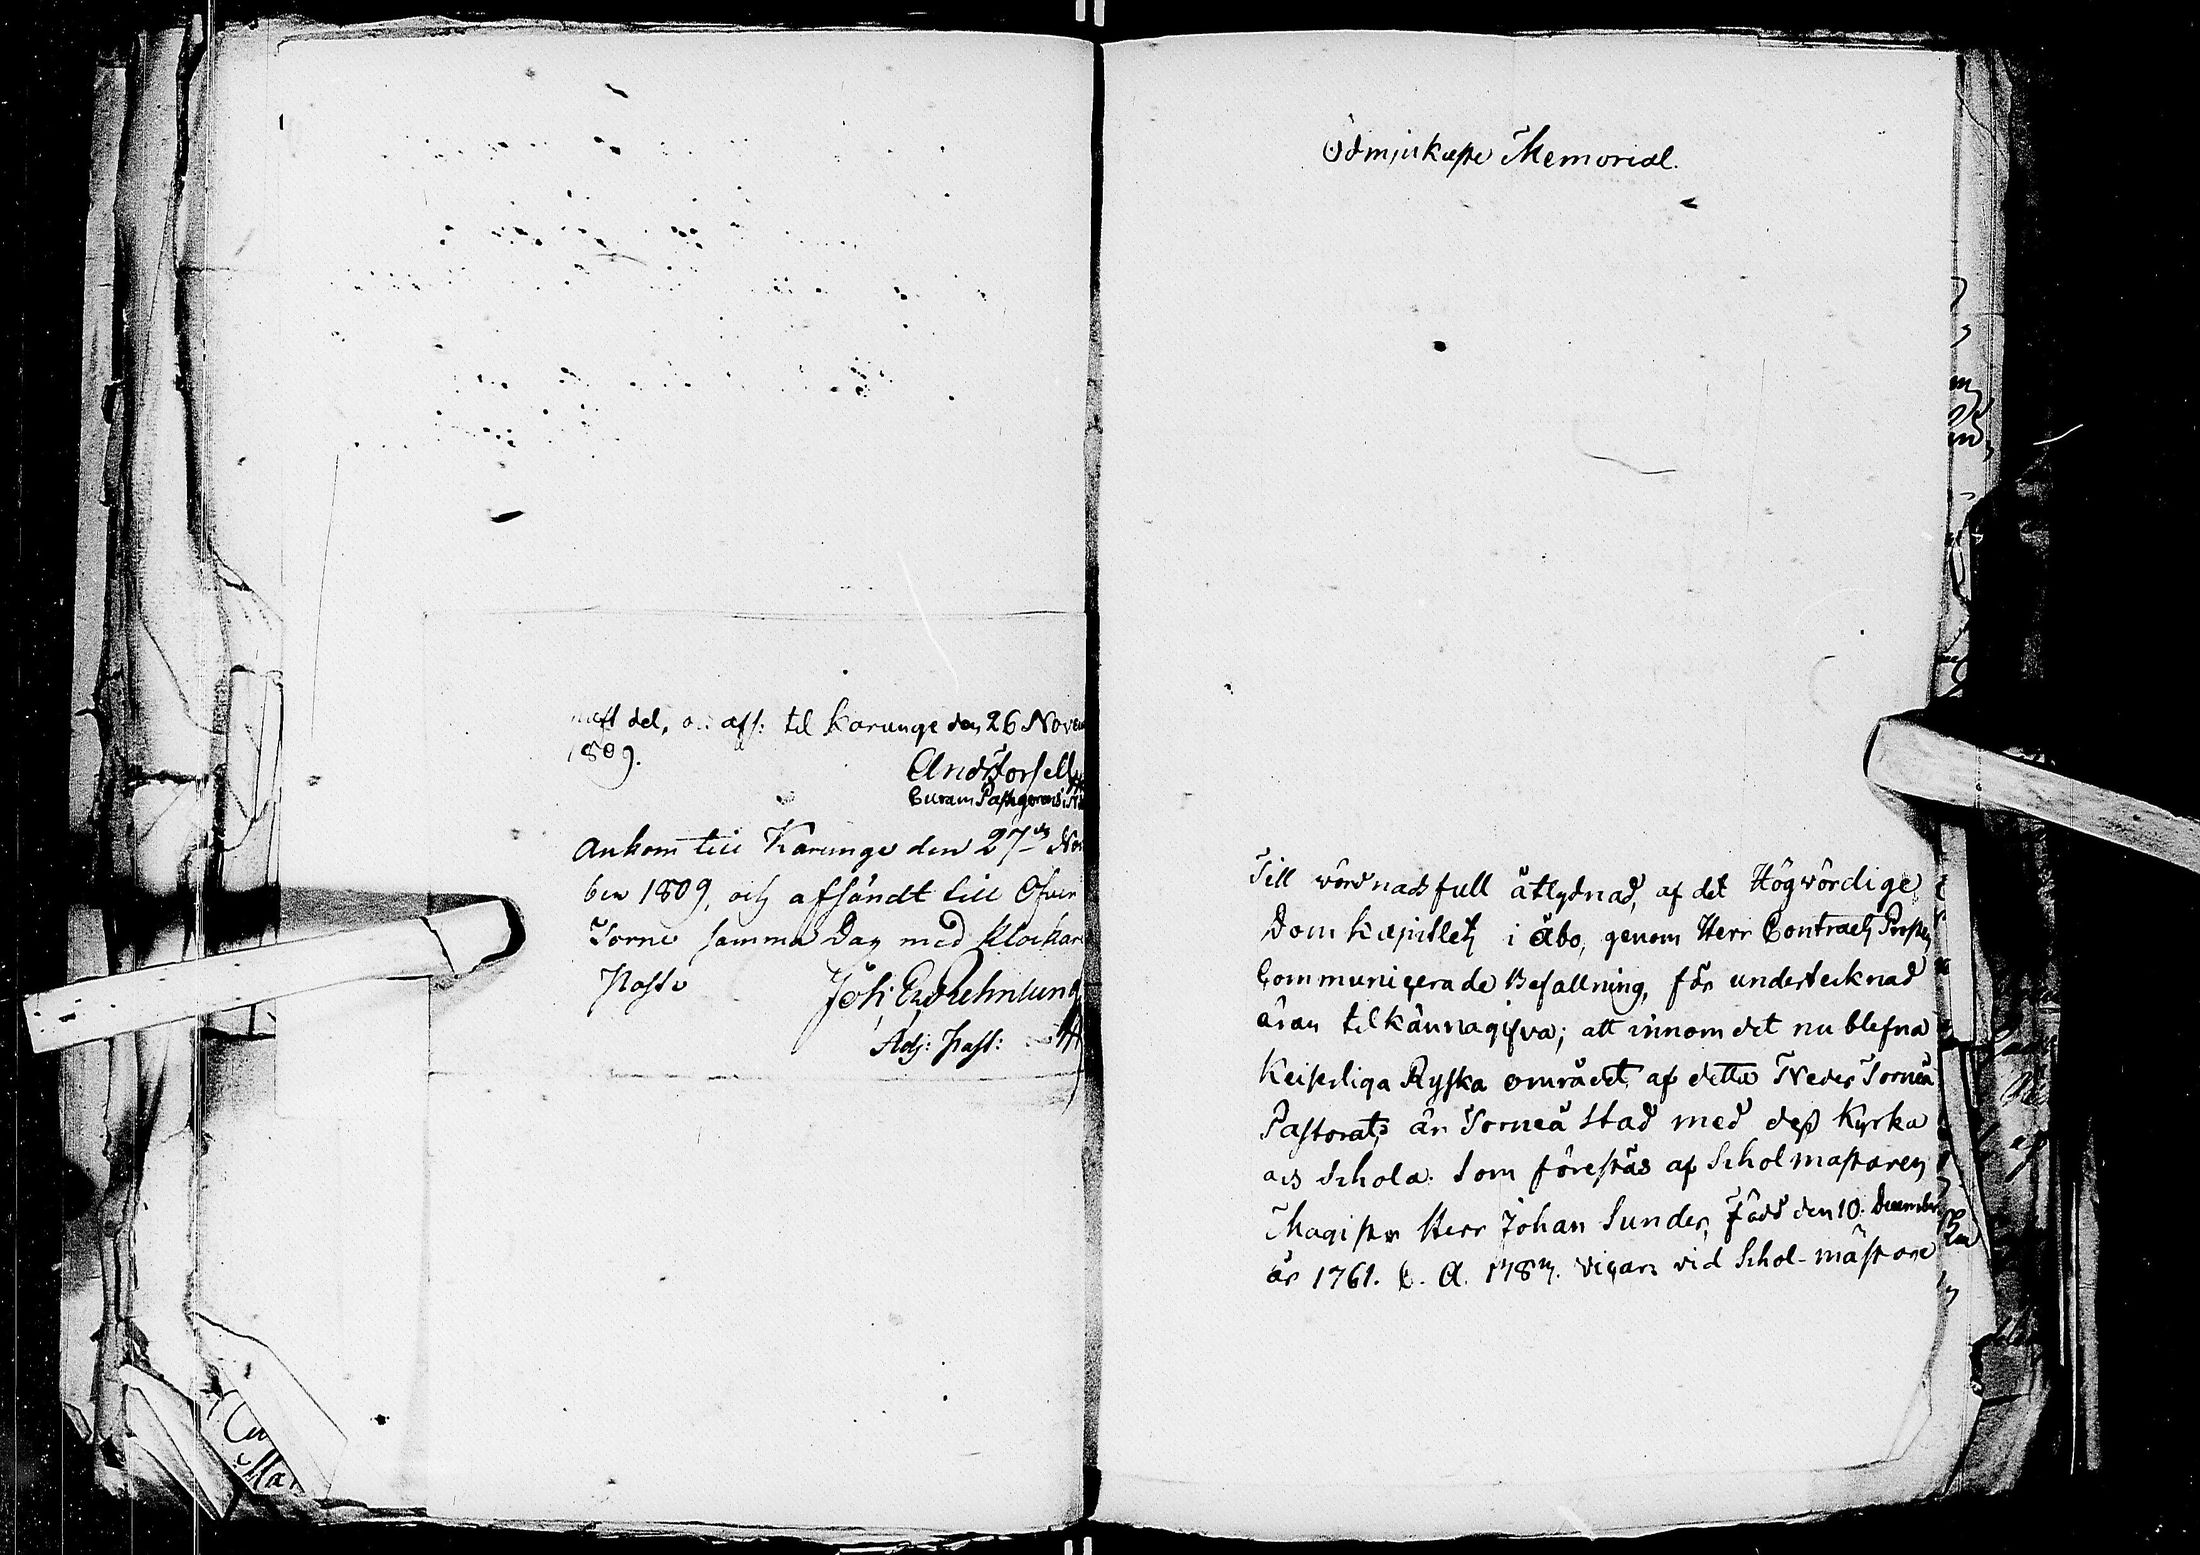 del, aff: til Karunge den 26 Novem
1809.
And Forsell
Curam Past gerens i N
Ankom till Karunge den 27de Nov
ber 1809, och afsändt till Öfver
Torne samma Dag med Klockar
Joh: Er Rehnlund
Adj: Past:
Ödmjukaste Memorial.
Till vördnadsfull åtlydnad, af det Högvördige
Dom Kapitlets i Åbo, genom Herr Contracts Prosten
Communicerade Befallning, får undertecknad
äran tilkännagifva; att innom det nu blefna
Keiserliga Ryska området, af detta Neder Torneå
Pastorat, är Torneå Stad med dess Kyrka
och Schola. Som förestås af Scholmästaren
Magister Herr Johan Sunder, född den 10. December
år 1761. C. A. 1787. Vicar: vid Schol-mästare